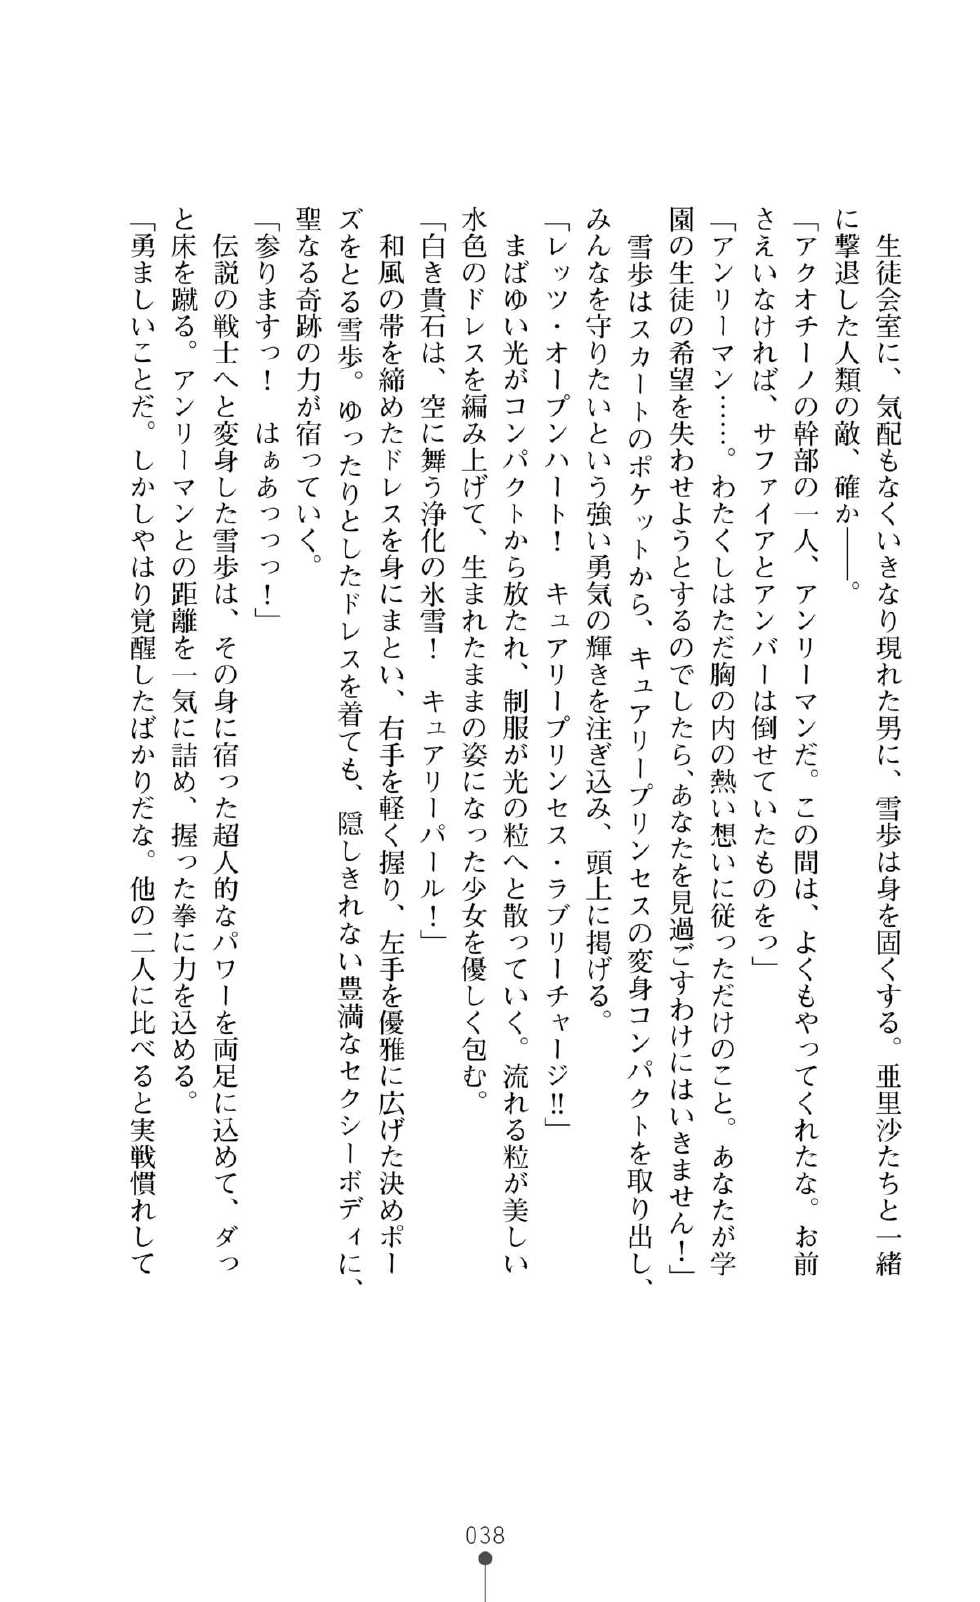 生徒会室に、気配もなくいきなり現れた男に、雪歩は身を固くする。亜里沙たちと一緒
に撃退した人類の敵、確か――。
「アクオチーノの幹部の一人、アンリーマンだ。この間は、よくもやってくれたな。お前
さえいなければ、サファイアとアンバーは倒せていたものをっ」
「アンリーマン……。わたくしはただ胸の内の熱い想いに従っただけのこと。あなたが学
園の生徒の希望を失わせようとするのでしたら、あなたを見過ごすわけにはいきません！」
　雪歩はスカートのポケットから、キュアリープリンセスの変身コンパクトを取り出し、
みんなを守りたいという強い勇気の輝きを注ぎ込み、頭上に掲げる。
「レッツ・オープンハート！　キュアリープリンセス・ラブリーチャージ!!」
　まばゆい光がコンパクトから放たれ、制服が光の粒へと散っていく。流れる粒が美しい
水色のドレスを編み上げて、生まれたままの姿になった少女を優しく包む。
「白き貴石は、空に舞う浄化の氷雪！　キュアリーパール！」
　和風の帯を締めたドレスを身にまとい、右手を軽く握り、左手を優雅に広げた決めポー
ズをとる雪歩。ゆったりとしたドレスを着ても、隠しきれない豊満なセクシーボディに、
聖なる奇跡の力が宿っていく。
「参りますっ！　はぁあっっっ！」
　伝説の戦士へと変身した雪歩は、その身に宿った超人的なパワーを両足に込めて、ダっ
と床を蹴る。アンリーマンとの距離を一気に詰め、握った拳に力を込める。
「勇ましいことだ。しかしやはり覚醒したばかりだな。他の二人に比べると実戦慣れして
038